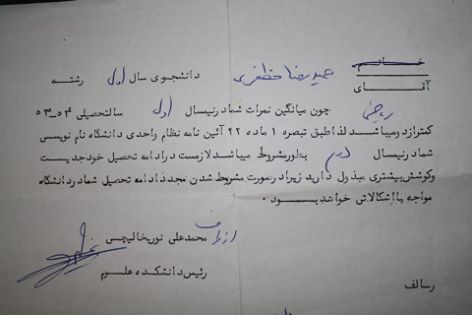 خانم
آقای حمیدرضا مظفری دانشجوی سال اول رشته
ریاضی چون میانگین نمرات شما در نیمسال اول سالتحصیلی ۵۴_۵۳
کمتر از دو میباشد لذا طبق تبصره ۱ ماده ۲۲ آئین نامه نظام واحدی دانشگاه نام نویسی
شما در نیمسال دوم بطور مشروط میباشد لازمست در ادامه تحصیل خود جدیت
و کوشش بیشتری مبذول دارید زیرا در صورت مشروط شدن مجدد ادامه تحصیل شما در دانشگاه
مواجه با اشکالاتی خواهد بود .
از طرف
محمدعلی نوریخالیچی
رئیس دانشکده علوم
رسالف